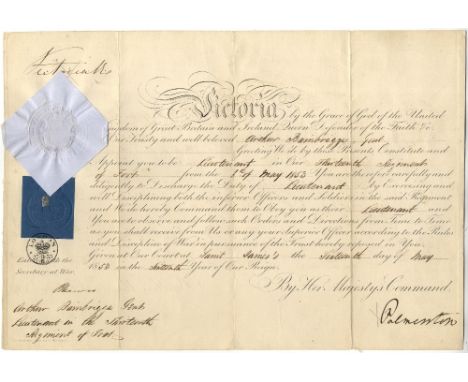 Victoria R
Victoria by the Grace of God of the United
Kingdom of Great Britain and Ireland, Queen Defender of the Faith &c
Our Trusty and well beloved Arthur Bainbrigge Gent
Greeting We do by these Presents Constitute and
Appoint you to be Lieutenant in Our Thirteenth Regiment
of Foot from the 1st of May 1853 You are therefore carefully and
diligently to Discharge the Duty of Lieutenant by Exercising and
well Disciplining both the inferior Officers and Soldiers in the said Regiment
and We do hereby Command them to Obey you as their Lieutenant and
You are to observe and follow such Orders and Directions from time to time
as you shall receive from Us or any your Superior Officer according to the Rules
and Discipline of War in pursuance of the Trust hereby reposed in You
Given at Our Court at Saint James's the Sixteenth day of May
1853 in the Sixteenth Year of Our Reign
Entered with the
Secretary at War.
By Her Majesty's Command
Arthur Bainbrigge Gent
Lieutenant in the Thirteenth
Regiment of Foot
Palmerston